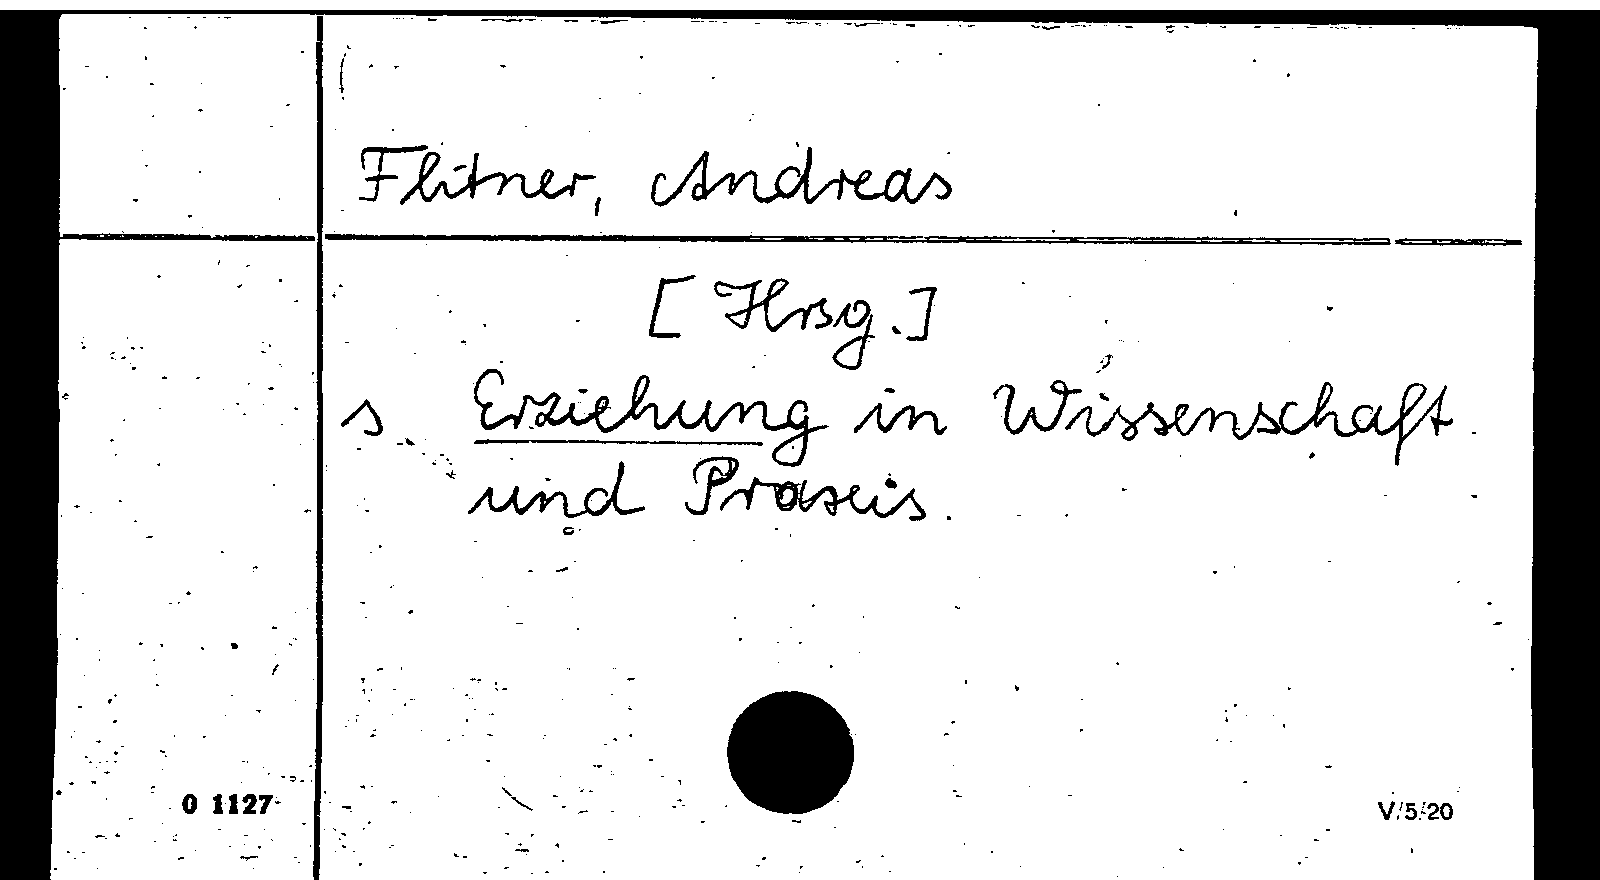 Flitner, Andreas
[Hrsg.]
s Erziehung in Wissenschaft
und Praxis.
0 1127
V/5/20